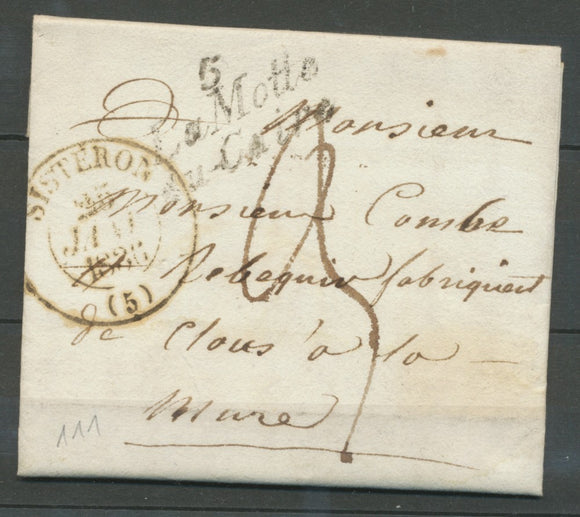 5
La Motte
du Caire
A Monsieur
SISTERON
JANV
(5)
Monsieur Combe
Rebequin fabriquent
de Clous a la
Mure
111